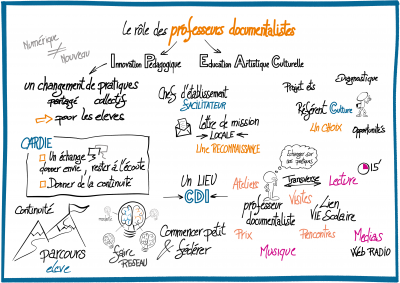 Le rôle des professeurs documentalistes
Numérique
≠
Nouveau
Innovation Pédagogique
Education Artistique Culturelle
un changement de pratiques
partagé collectifs
⇒ pour les eleves
Chefs d'établissement
FACILITATEUR
lettre de mission
LOCALE
Une RECONNAISSANCE
Projet etb
Diagnostique
Référent Culture
Un CHOIX
Opportunités
CARDIE
Un échange,
donner envie, rester à l'écoute
Donner de la continuité
Continuité
parcours
eleve
faire
RESEAU
Un LIEU
CDI
Commencer petit
& fédérer
Echanger sur
ses pratiques
Ateliers
Transverse
Lecture
15'
professeur
documentaliste
Visites
Lien
VIE Scolaire
Prix
Rencontres
Musique
Médias
Web RADIO